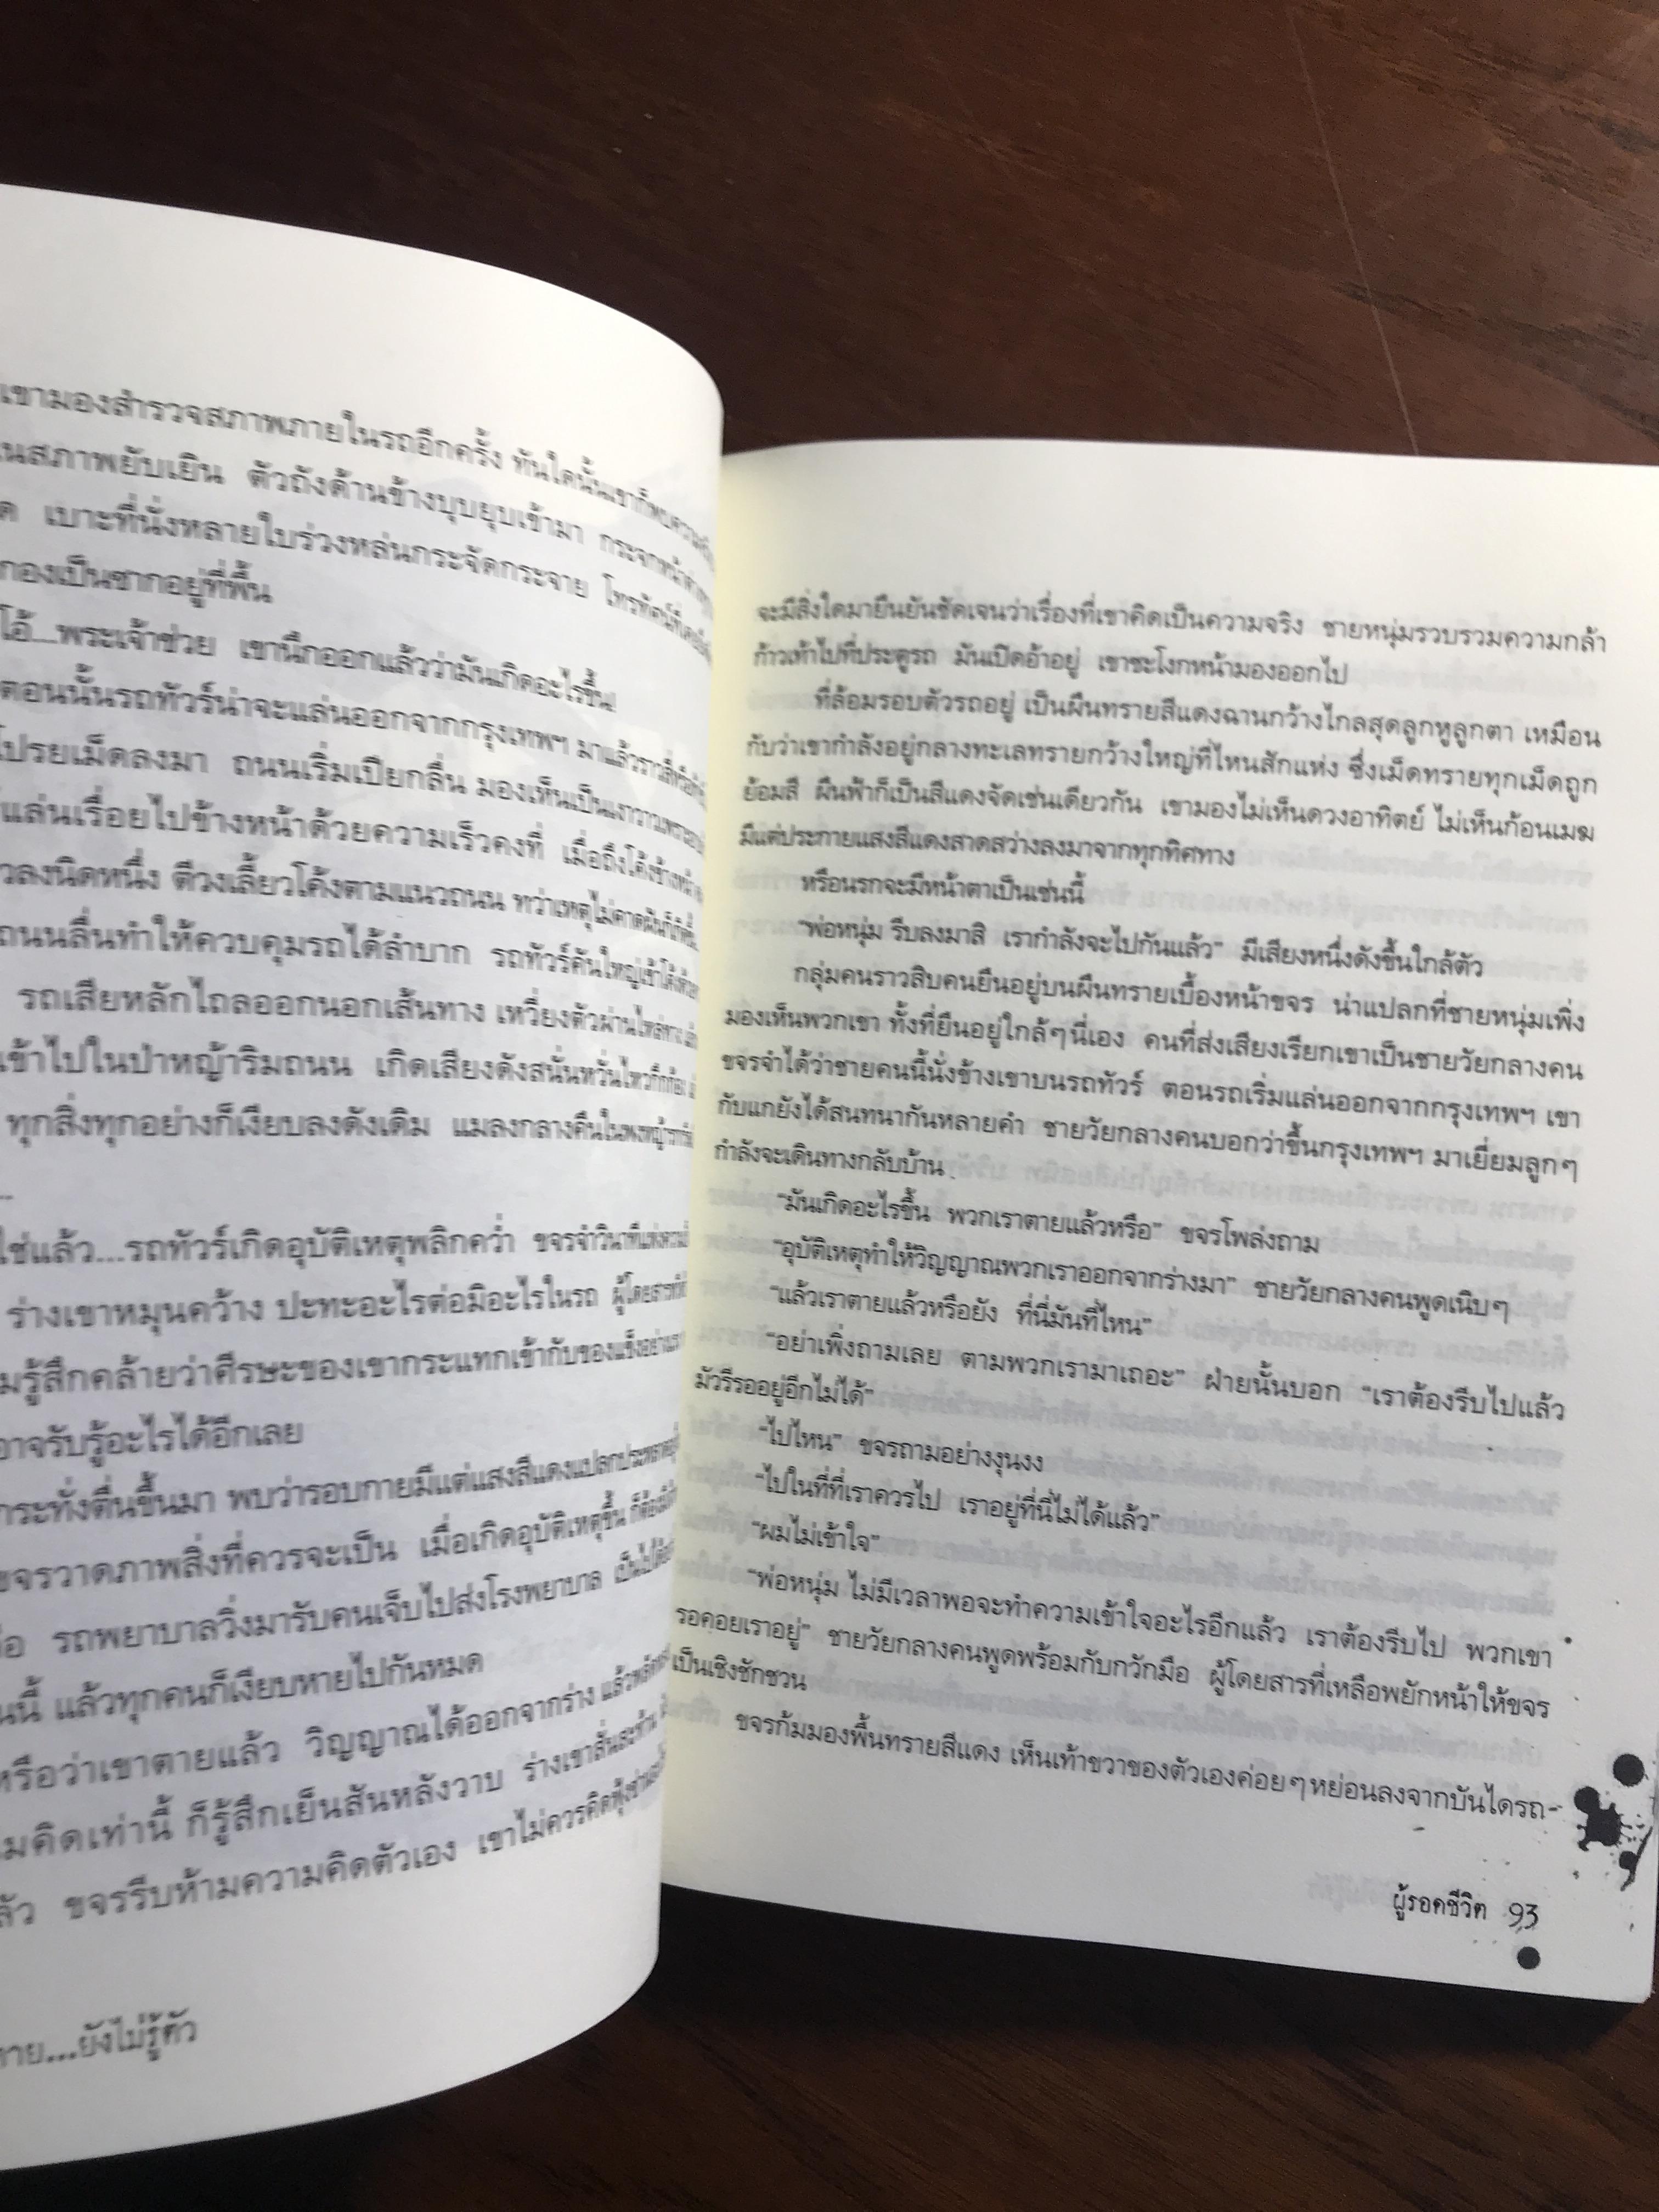 เขามองสำรวจสภาพภายในรถอีกครั้ง ทันใดนั้นเขาก็พบความ
สภาพยับเยิน ตัวถังด้านข้างบุบยุบเข้ามา กระจกหน้าต่าง
เบาะที่นั่งหลายใบร่วงหล่นกระจัดกระจาย โทรทัศน์
กองเป็นซากอยู่ที่พื้น
โอ้...พระเจ้าช่วย เขานึกออกแล้วว่ามันเกิดอะไรขึ้น!
ตอนนั้นรถทัวร์น่าจะแล่นออกจากกรุงเทพฯ มาแล้วราว
โปรยเม็ดลงมา ถนนเริ่มเปียกลื่น มองเห็นเป็นเงาวาว
แล่นเรื่อยไปข้างหน้าด้วยความเร็วคงที่ เมื่อถึงโค้งข้างหน้า
ลงนิดหนึ่ง ตีวงเลี้ยวโค้งตามแนวถนน ทว่าเหตุไม่คาดฝันก็
ถนนลื่นทำให้ควบคุมรถได้ลำบาก รถทัวร์คันใหญ่เข้าโค้ง
รถเสียหลักไถลออกนอกเส้นทาง เหวี่ยงตัวผ่านไหล่ทาง
เข้าไปในป่าหญ้าริมถนน เกิดเสียงดังสนั่นหวั่นไหวกึกก้อง
ทุกสิ่งทุกอย่างก็เงียบลงดังเดิม แมลงกลางคืนในพงหญ้า
...
ใช่แล้ว...รถทัวร์เกิดอุบัติเหตุพลิกคว่ำ ขจรจำวินาทีแห่งความ
ร่างเขาหมุนคว้าง ปะทะอะไรต่อมิอะไรในรถ ผู้โดยสาร
รู้สึกคล้ายว่าศีรษะของเขากระแทกเข้ากับของแข็งอย่าง
อาจรับรู้อะไรได้อีกเลย
กระทั่งตื่นขึ้นมา พบว่ารอบกายมีแต่แสงสีแดงแปลกประหลาด
ขจรวาดภาพสิ่งที่ควรจะเป็น เมื่อเกิดอุบัติเหตุขึ้น ก็ต้อง
รถพยาบาลวิ่งมารับคนเจ็บไปส่งโรงพยาบาล เป็นไปได้
นี้ แล้วทุกคนก็เงียบหายไปกันหมด
หรือว่าเขาตายแล้ว วิญญาณได้ออกจากร่าง แล้ว
คิดเท่านี้ ก็รู้สึกเย็นสันหลังวาบ ร่างเขาสั่นสะท้าน
ขจรรีบห้ามความคิดตัวเอง เขาไม่ควรคิดฟุ้งซ่าน
ตาย...ยังไม่รู้ตัว
จะมีสิ่งใดมายืนยันชัดเจนว่าเรื่องที่เขาคิดเป็นความจริง ชายหนุ่มรวบรวมความกล้า
ก้าวเท้าไปที่ประตูรถ มันเปิดอ้าอยู่ เขาชะโงกหน้ามองออกไป
ที่ล้อมรอบตัวรถอยู่ เป็นผืนทรายสีแดงฉานกว้างไกลสุดลูกหูลูกตา เหมือน
กับว่าเขากำลังอยู่กลางทะเลทรายกว้างใหญ่ที่ไหนสักแห่ง ซึ่งเม็ดทรายทุกเม็ดถูก
ย้อมสี ผืนฟ้าก็เป็นสีแดงจัดเช่นเดียวกัน เขามองไม่เห็นดวงอาทิตย์ ไม่เห็นก้อนเมฆ
มีแต่ประกายแสงสีแดงสาดสว่างลงมาจากทุกทิศทาง
หรือนรกจะมีหน้าตาเป็นเช่นนี้
"พ่อหนุ่ม รีบลงมาสิ เรากำลังจะไปกันแล้ว" มีเสียงหนึ่งดังขึ้นใกล้ตัว
กลุ่มคนราวสิบคนยืนอยู่บนผืนทรายเบื้องหน้าขจร น่าแปลกที่ชายหนุ่มเพิ่ง
มองเห็นพวกเขา ทั้งที่ยืนอยู่ใกล้ๆ นี่เอง คนที่ส่งเสียงเรียกเขาเป็นชายวัยกลางคน
ขจรจำได้ว่าชายคนนี้นั่งข้างเขาบนรถทัวร์ ตอนรถเริ่มแล่นออกจากกรุงเทพฯ เขา
กับแกยังได้สนทนากันหลายคำ ชายวัยกลางคนบอกว่าขึ้นกรุงเทพฯ มาเยี่ยมลูกๆ
กำลังจะเดินทางกลับบ้าน
"มันเกิดอะไรขึ้น พวกเราตายแล้วหรือ" ขจรโพล่งถาม
"อุบัติเหตุทำให้วิญญาณพวกเราออกจากร่างมา" ชายวัยกลางคนพูดเนิบๆ
"แล้วเราตายแล้วหรือยัง ที่นี่มันที่ไหน"
"อย่าเพิ่งถามเลย ตามพวกเรามาเถอะ" ฝ่ายนั้นบอก "เราต้องรีบไปแล้ว
มัวรีรออยู่อีกไม่ได้"
"ไปไหน" ขจรถามอย่างงุนงง
"ไปในที่ที่เราควรไป เราอยู่ที่นี่ไม่ได้แล้ว"
"ผมไม่เข้าใจ"
"พ่อหนุ่ม ไม่มีเวลาพอจะทำความเข้าใจอะไรอีกแล้ว เราต้องรีบไป พวกเขา
รอคอยเราอยู่" ชายวัยกลางคนพูดพร้อมกับกวักมือ ผู้โดยสารที่เหลือพยักหน้าให้ขจร
เป็นเชิงชักชวน
ขจรก้มมองพื้นทรายสีแดง เห็นเท้าขวาของตัวเองค่อยๆ หย่อนลงจากบันไดรถ-
ผู้รอดชีวิต 93